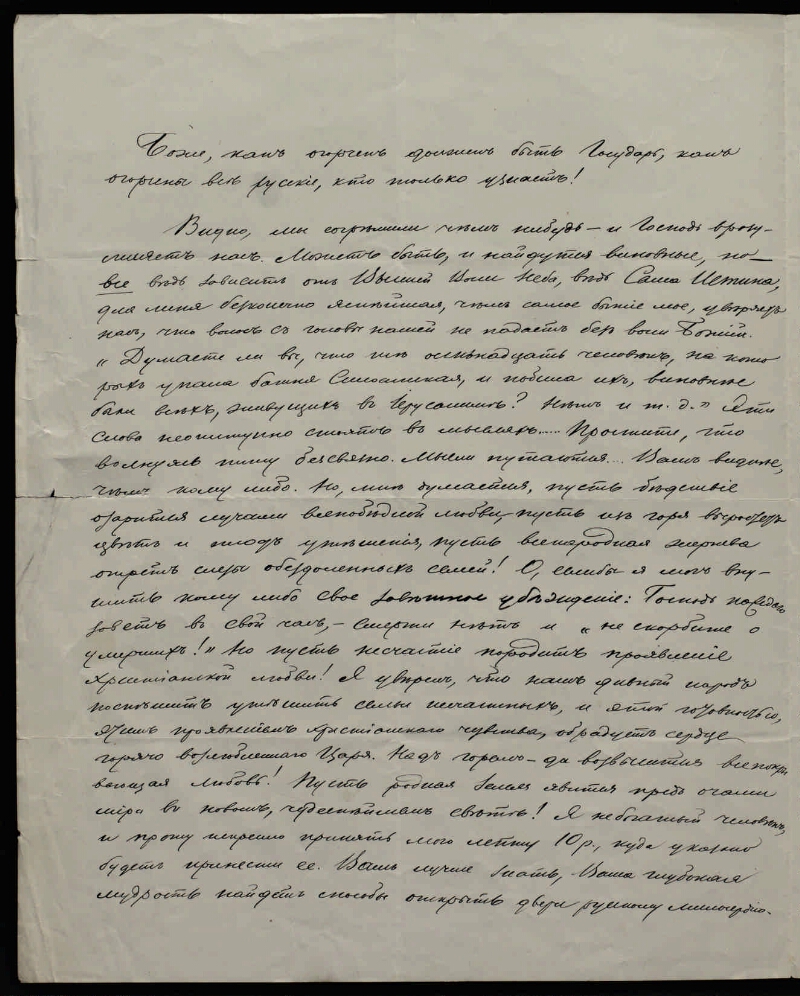 Боже, какъ огорченъ долженъ быть Государь, какъ
огорчены всѣ русскіе, кто только узнаетъ!
Видно, мы согрѣшили чѣмъ нибудь – и Господь вразу-
мляетъ насъ. Можетъ быть, и найдутся виновные, но
все вѣдь зависитъ отъ Высшей Воли Неба, вѣдь Сама Истина,
для меня безконечно яснѣйшая, чѣмъ самое бытіе мое, увѣряетъ
насъ, что волосъ съ головы нашей не падаетъ безъ воли Божіей.
„Думаете ли вы, что тѣ осмьнадцать человѣкъ, на кото
рыхъ упала башня Силоамская, и побила ихъ, виновнѣе
были всѣхъ, живущихъ въ Іерусалимѣ? Нѣтъ и т. д." Эти
слова неотступно стоятъ въ мысляхъ..... Простите, что
волнуясь пишу безсвязно. Мысли путаются... Вамъ виднѣе,
чѣмъ кому либо. Но, мнѣ думается, пусть бѣдствіе
озарится лучами всепобѣдной любви, пусть изъ горя выростетъ
цвѣтъ и плодъ утѣшенія, пусть всенародная жертва
отретъ слезы обездоленныхъ семей! О, еслибы я могъ вну-
шить кому либо свое завѣтное убѣжденіе: Господь каждаго
зоветъ въ свой часъ, – смерти нѣтъ и „не скорбите о
умершихъ!" Но пусть несчастіе породитъ проявленіе
Христіанской любви! Я увѣренъ, что нашъ дивный народъ
поспѣшитъ утѣшить семьи несчастныхъ, и этой готовностью,
этимъ проявленіемъ христіанскаго чувства, обрадуетъ сердце
горячо возлюбленнаго Царя. Надъ горемъ – да возвысится всепокры
вающая любовь! Пусть родная Земля явится предъ очами
міра въ новомъ, чудеснѣйшемъ свѣтѣ! Я небогатый человѣкъ,
и прошу искренно принять мою лепту 10 р., куда указано
будетъ принести ее. Вамъ лучше знать, Ваша глубокая
мудрость найдетъ способы открыть двери русскому милосердію.